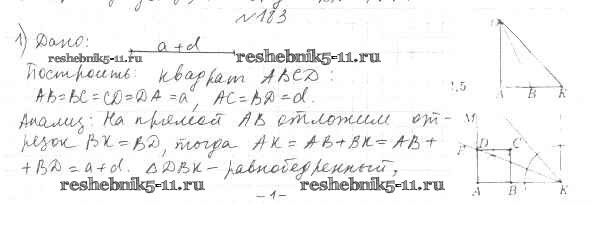 №183
1) Дано: a+d
reshebnik5-11.ru reshebnik5-11.ru
Построить: квадрат ABCD:
AB=BC=CD=DA=a, AC=BD=d.
Анализ: На прямой AB отложим от-
резок BK=BD, тогда AK=AB+BK=AB+
+BD=a+d. △DBK – равнобедренный,
reshebnik5-11.ru reshebnik5-11.ru
-1-
B K
M
P D C
A B K